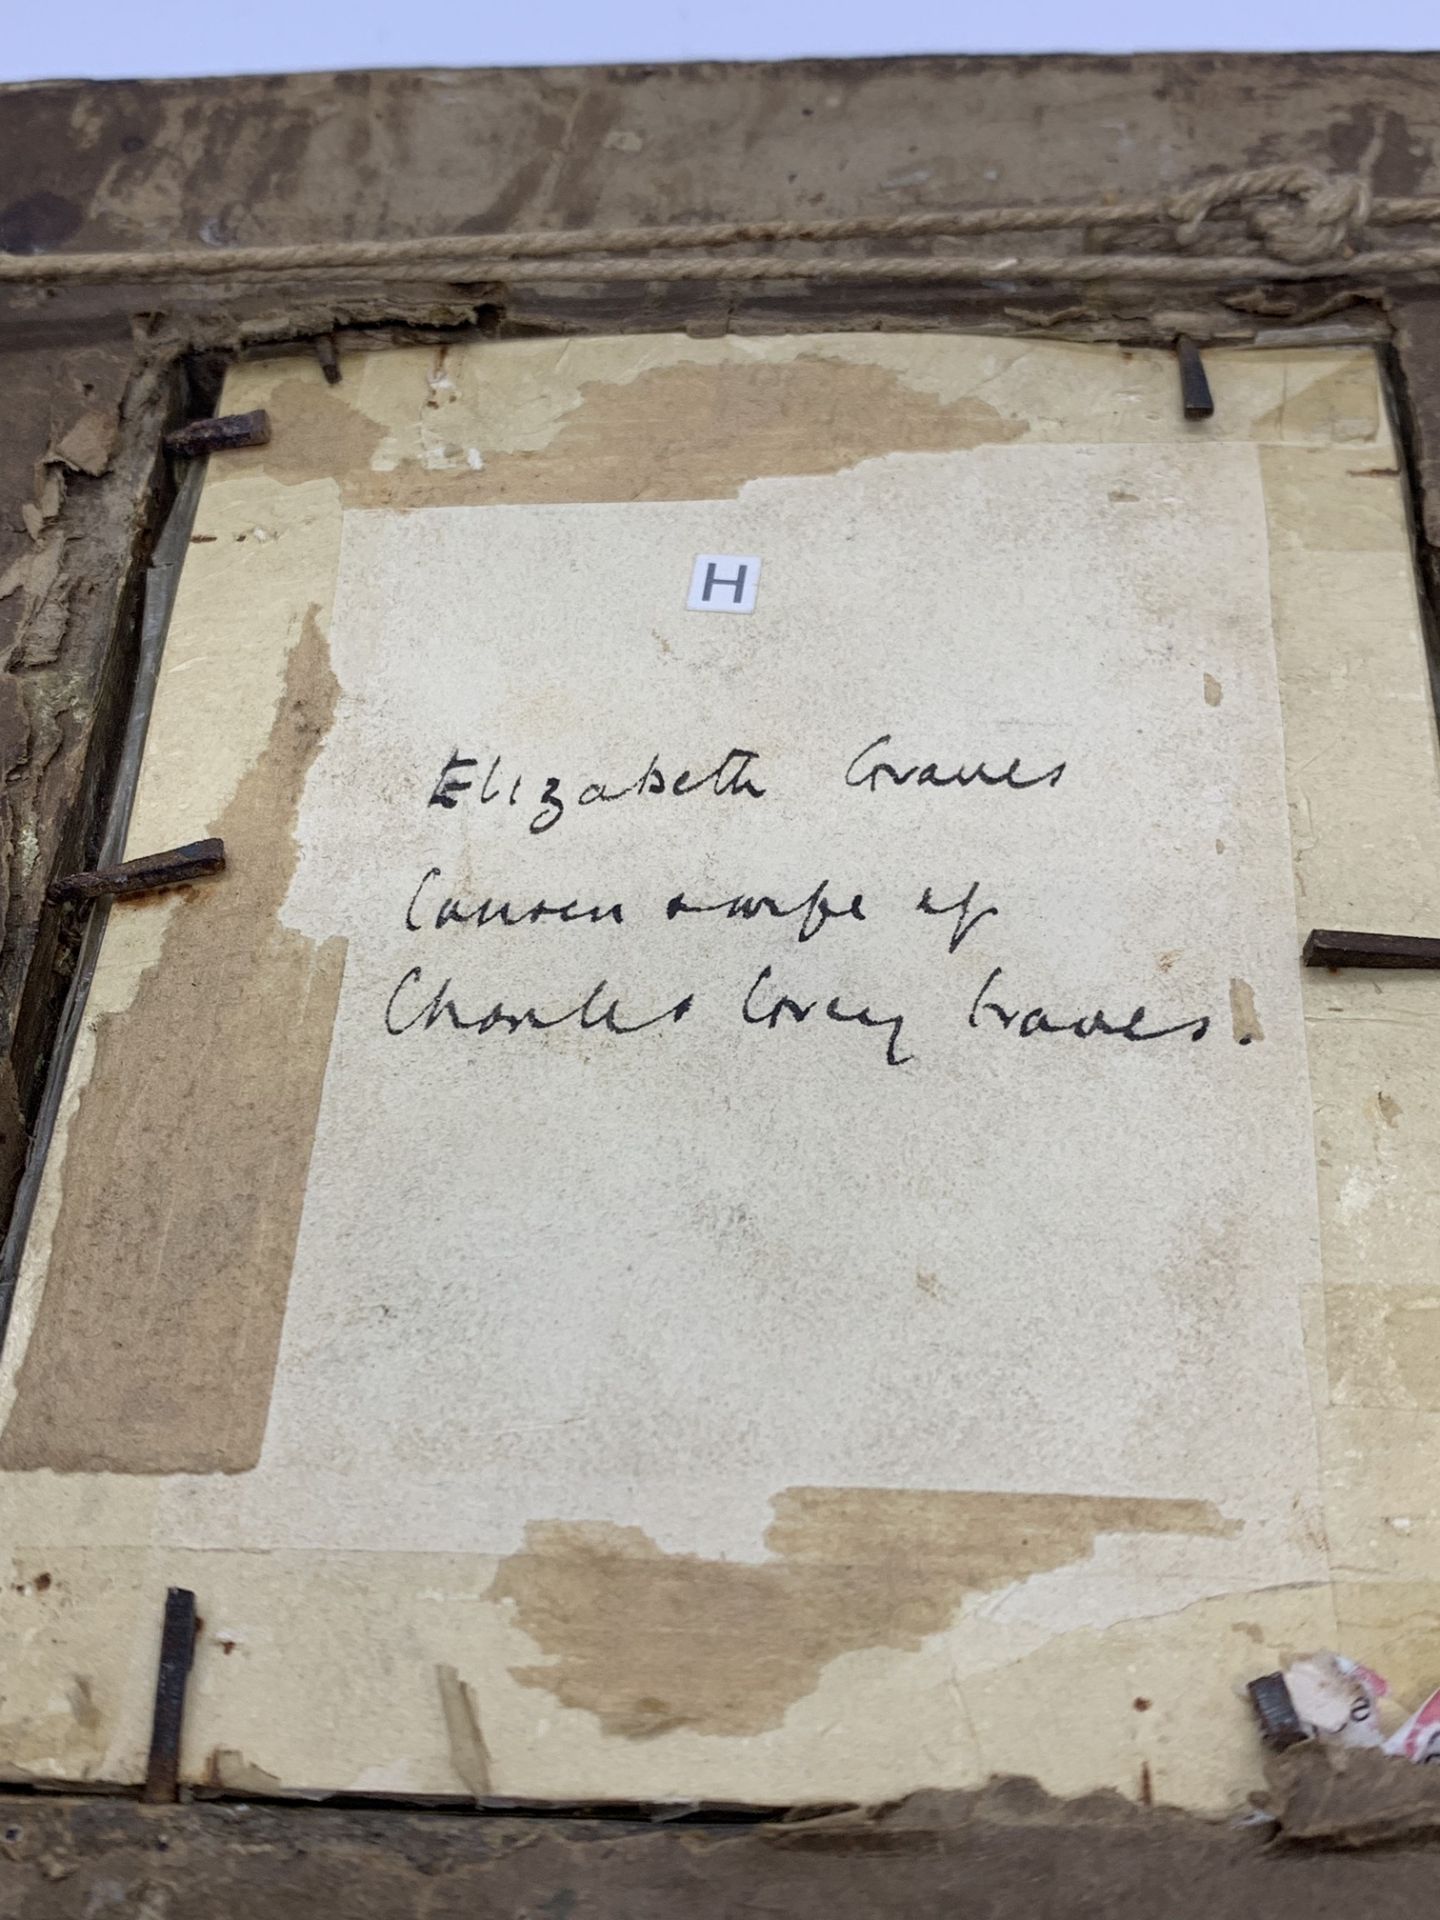 H
Elizabeth Graves
Cousen & wife of
Charles Grey Graves.